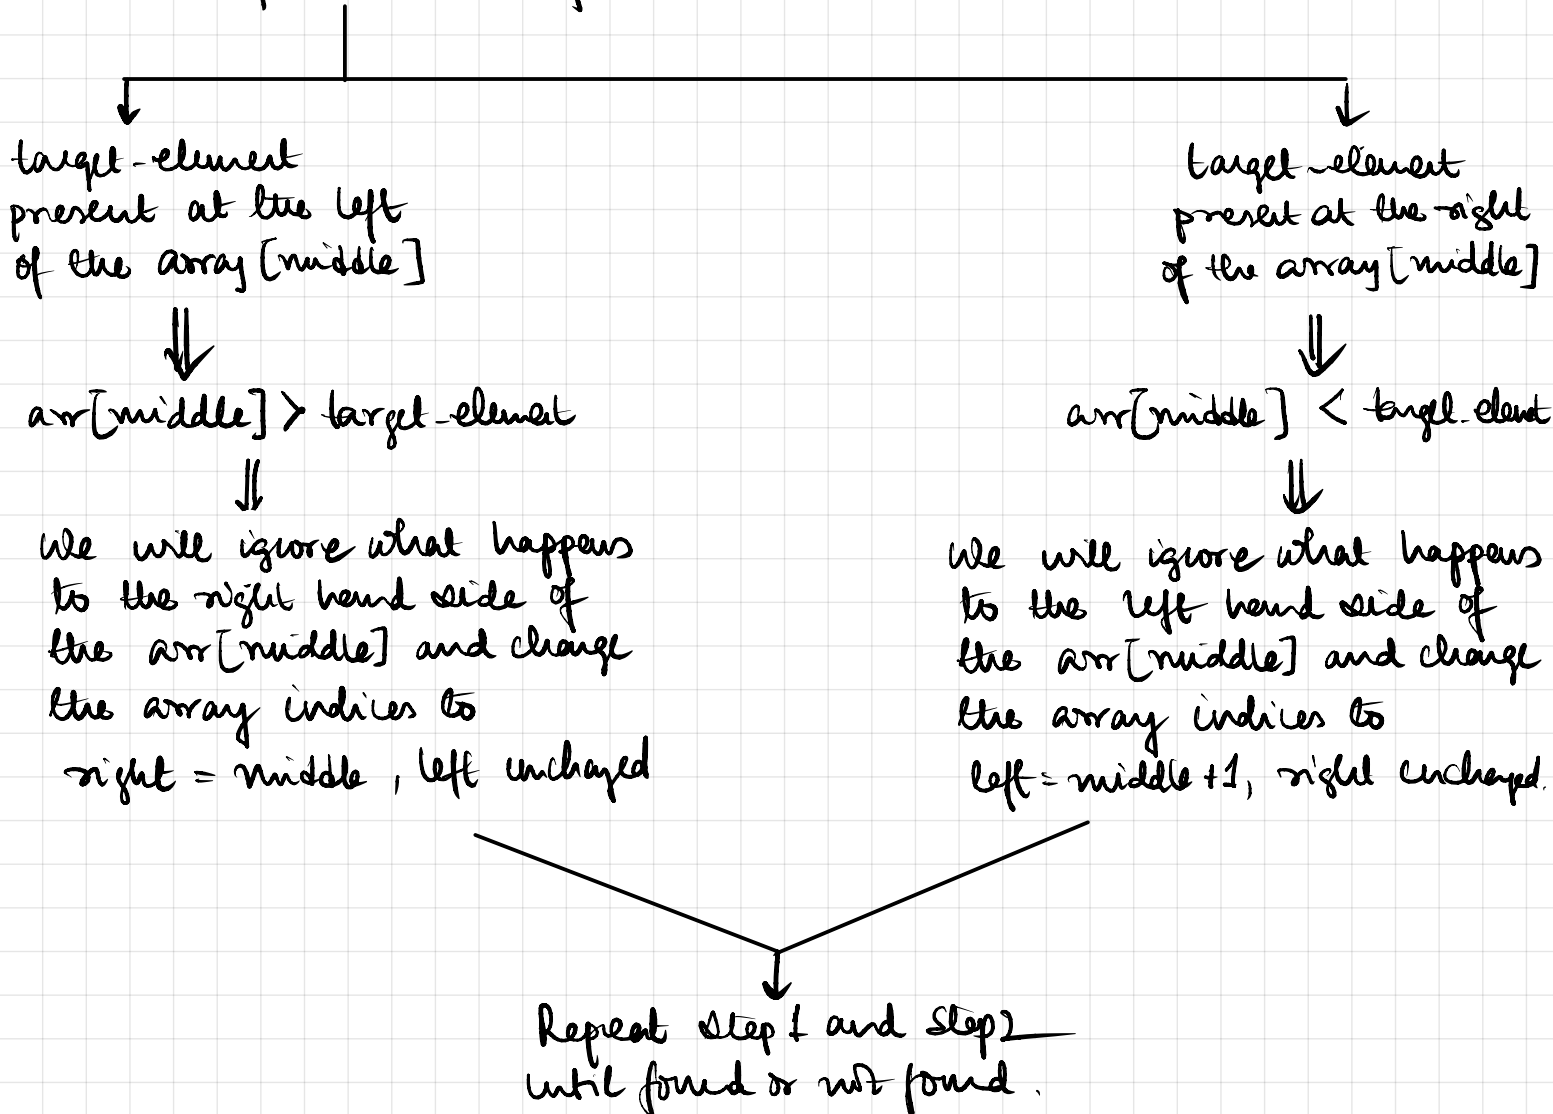 target-element
present at the left
of the array[middle]
arr[middle] > target-element
We will ignore what happens
to the right hand side of
the arr[middle] and change
the array indices to
right = middle , left unchanged
target-element
present at the right
of the array[middle]
arr[middle] < target-element
We will ignore what happens
to the left hand side of
the arr[middle] and change
the array indices to
left = middle +1, right unchanged.
Repeat step 1 and Step 2
until found or not found.